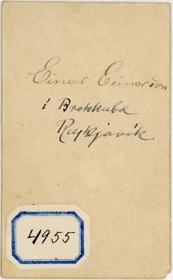 Einar Einarsson
í Brekkubæ
Reykjavík
4955